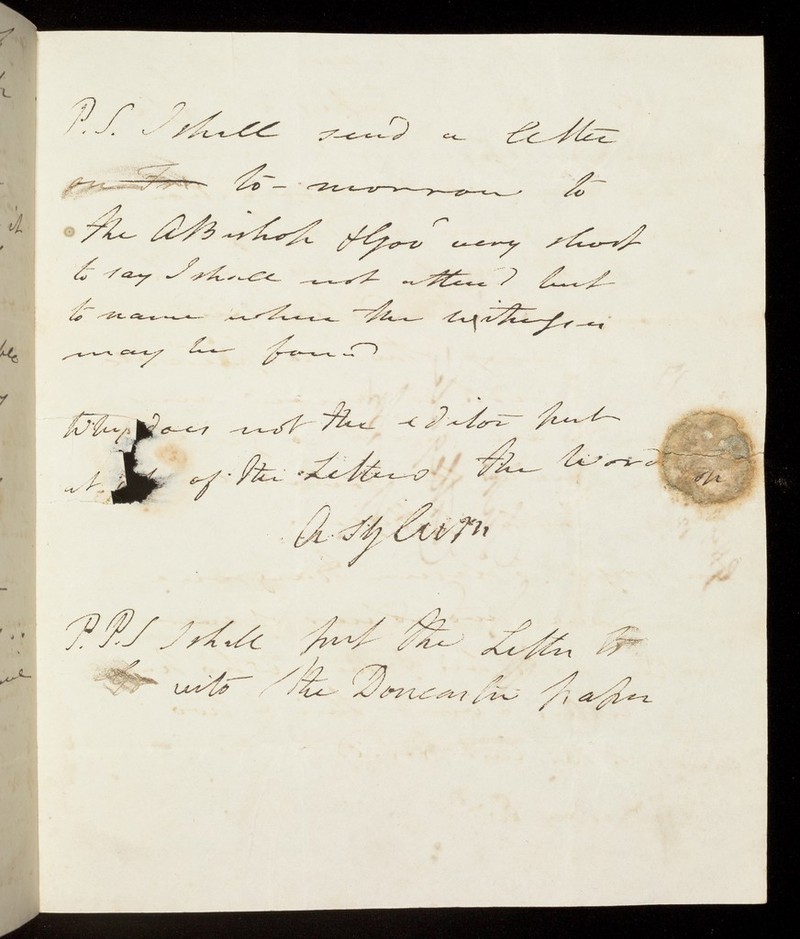 P.S. I shall send a letter
on to-morrow to
the ABishop & Govr very short
to say I shall not attend but
to name where the witnesses
may be found
Why does not the editor put
at of the Letters the Word
on
Asylum
P.P.S I shall put the Letter to
into the Doncaster paper